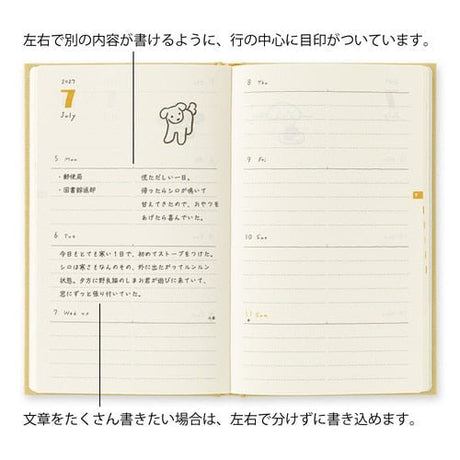 左右で別の内容が書けるように、行の中心に目印がついています。
2027
7
July
5 Mon
・郵便局
・図書館返却
慌ただしい一日。
帰ったらシロが鳴いて
甘えてきたので、おやつを
あげたら喜んでいた。
6 Tue
今日もとても寒い1日で、初めてストーブをつけた。
シロは寒さもなんのその、外に出たがってルンルン
状態。夕方に野良猫のしまお君が遊びにきていて、
窓にずっと張り付いていた。
7 Wed
8 Thu
9 Fri
10 Sat
11 Sun
文章をたくさん書きたい場合は、左右で分けずに書き込めます。